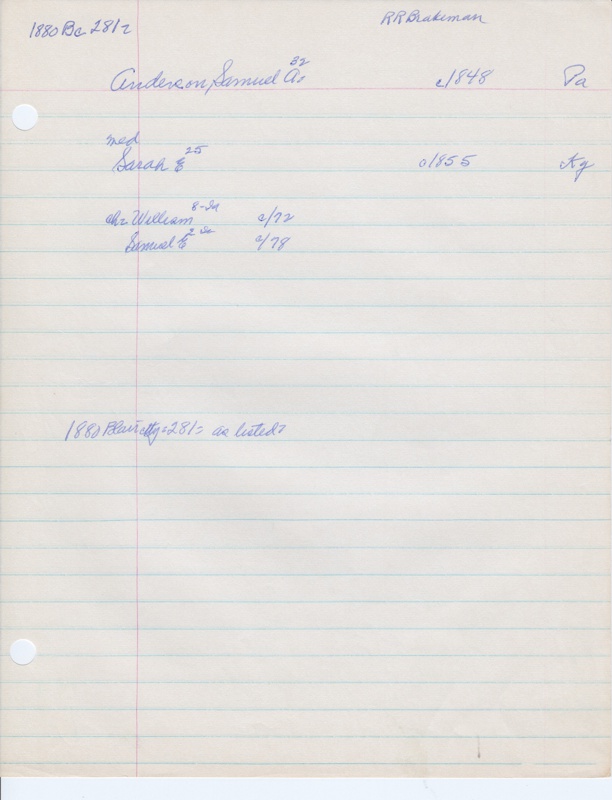 1880 Bc 281=
RR Brakeman
32
Anderson, Samuel A= c/1848 Pa
med
25
Sarah E c/1855 Ky
8-Ia
ch= William c/72
2 Ia
Samuel E c/78
1880 Blair cty=281= as listed=